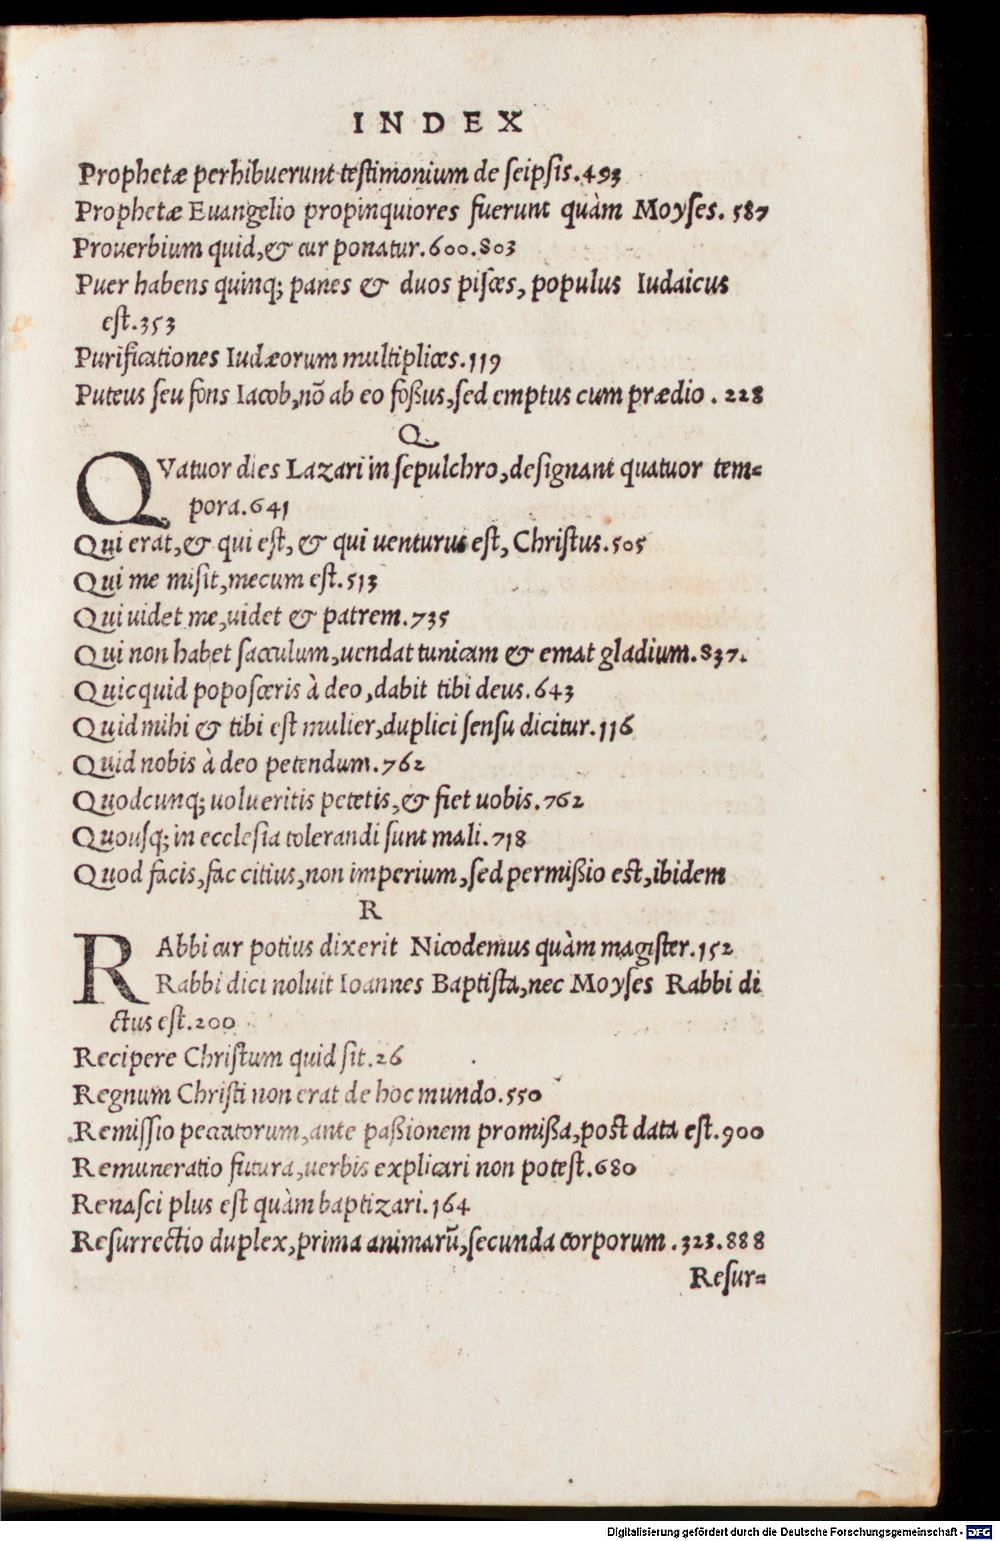 INDEX
Prophetæ perhibuerunt testimonium de seipsis.493
Prophetæ Euangelio propinquiores fuerunt quàm Moyses. 587
Prouerbium quid,& cur ponatur.600.803
Puer habens quinq; panes & duos pisces, populus Iudaicus
est.353
Purificationes Iudæorum multiplices.119
Puteus seu fons Iacob,nō ab eo foßus,sed emptus cum prædio . 228
Q
QVatuor dies Lazari in sepulchro,designant quatuor tem=
pora.641
Qui erat,& qui est, & qui uenturus est, Christus.505
Qui me misit,mecum est.513
Qui uidet me,uidet & patrem.735
Qui non habet sacculum,uendat tunicam & emat gladium.837.
Quicquid poposceris à deo,dabit tibi deus.643
Quid mihi & tibi est mulier,duplici sensu dicitur.116
Quid nobis à deo petendum.762
Quodcunq; uolueritis petetis,& fiet uobis.762
Quousq; in ecclesia tolerandi sunt mali.718
Quod facis,fac citius,non imperium,sed permißio est,ibidem
R
RAbbi cur potius dixerit Nicodemus quàm magister.152
Rabbi dici noluit Ioannes Baptista,nec Moyses Rabbi di
ctus est.200
Recipere Christum quid sit.26
Regnum Christi non erat de hoc mundo.550
Remissio peccatorum,ante paßionem promißa,post data est.900
Remuneratio futura,uerbis explicari non potest.680
Renasci plus est quàm baptizari.164
Resurrectio duplex,prima animarū,secunda corporum .323.888
Resur=
Digitalisierung gefördert durch die Deutsche Forschungsgemeinschaft - DFG